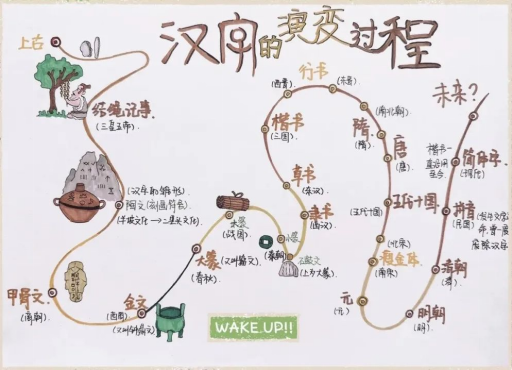 汉字的演变过程
上古
结绳记事
(三皇五帝)
(汉字的雏形)
陶文(刻画符号)
(半坡文化→二里头文化)
甲骨文
(商朝)
金文
(西周)
(又叫钟鼎文)
大篆
(又叫籀文)
(春秋)
木牍
(战国)
小篆
(秦朝)
石鼓文
隶书
(西汉)
草书
(东汉)
楷书
(三国)
(西晋)
行书
(东晋)
(南北朝)
隋
(隋)
唐
(唐)
五代十国
(五代十国)
(北宋)
瘦金体
(南宋)
元
(元)
明朝
(明)
清朝
(清)
拼音
(民国)
简体字
(现代)
楷书一
直沿用
至今
未来?
WAKE UP!!